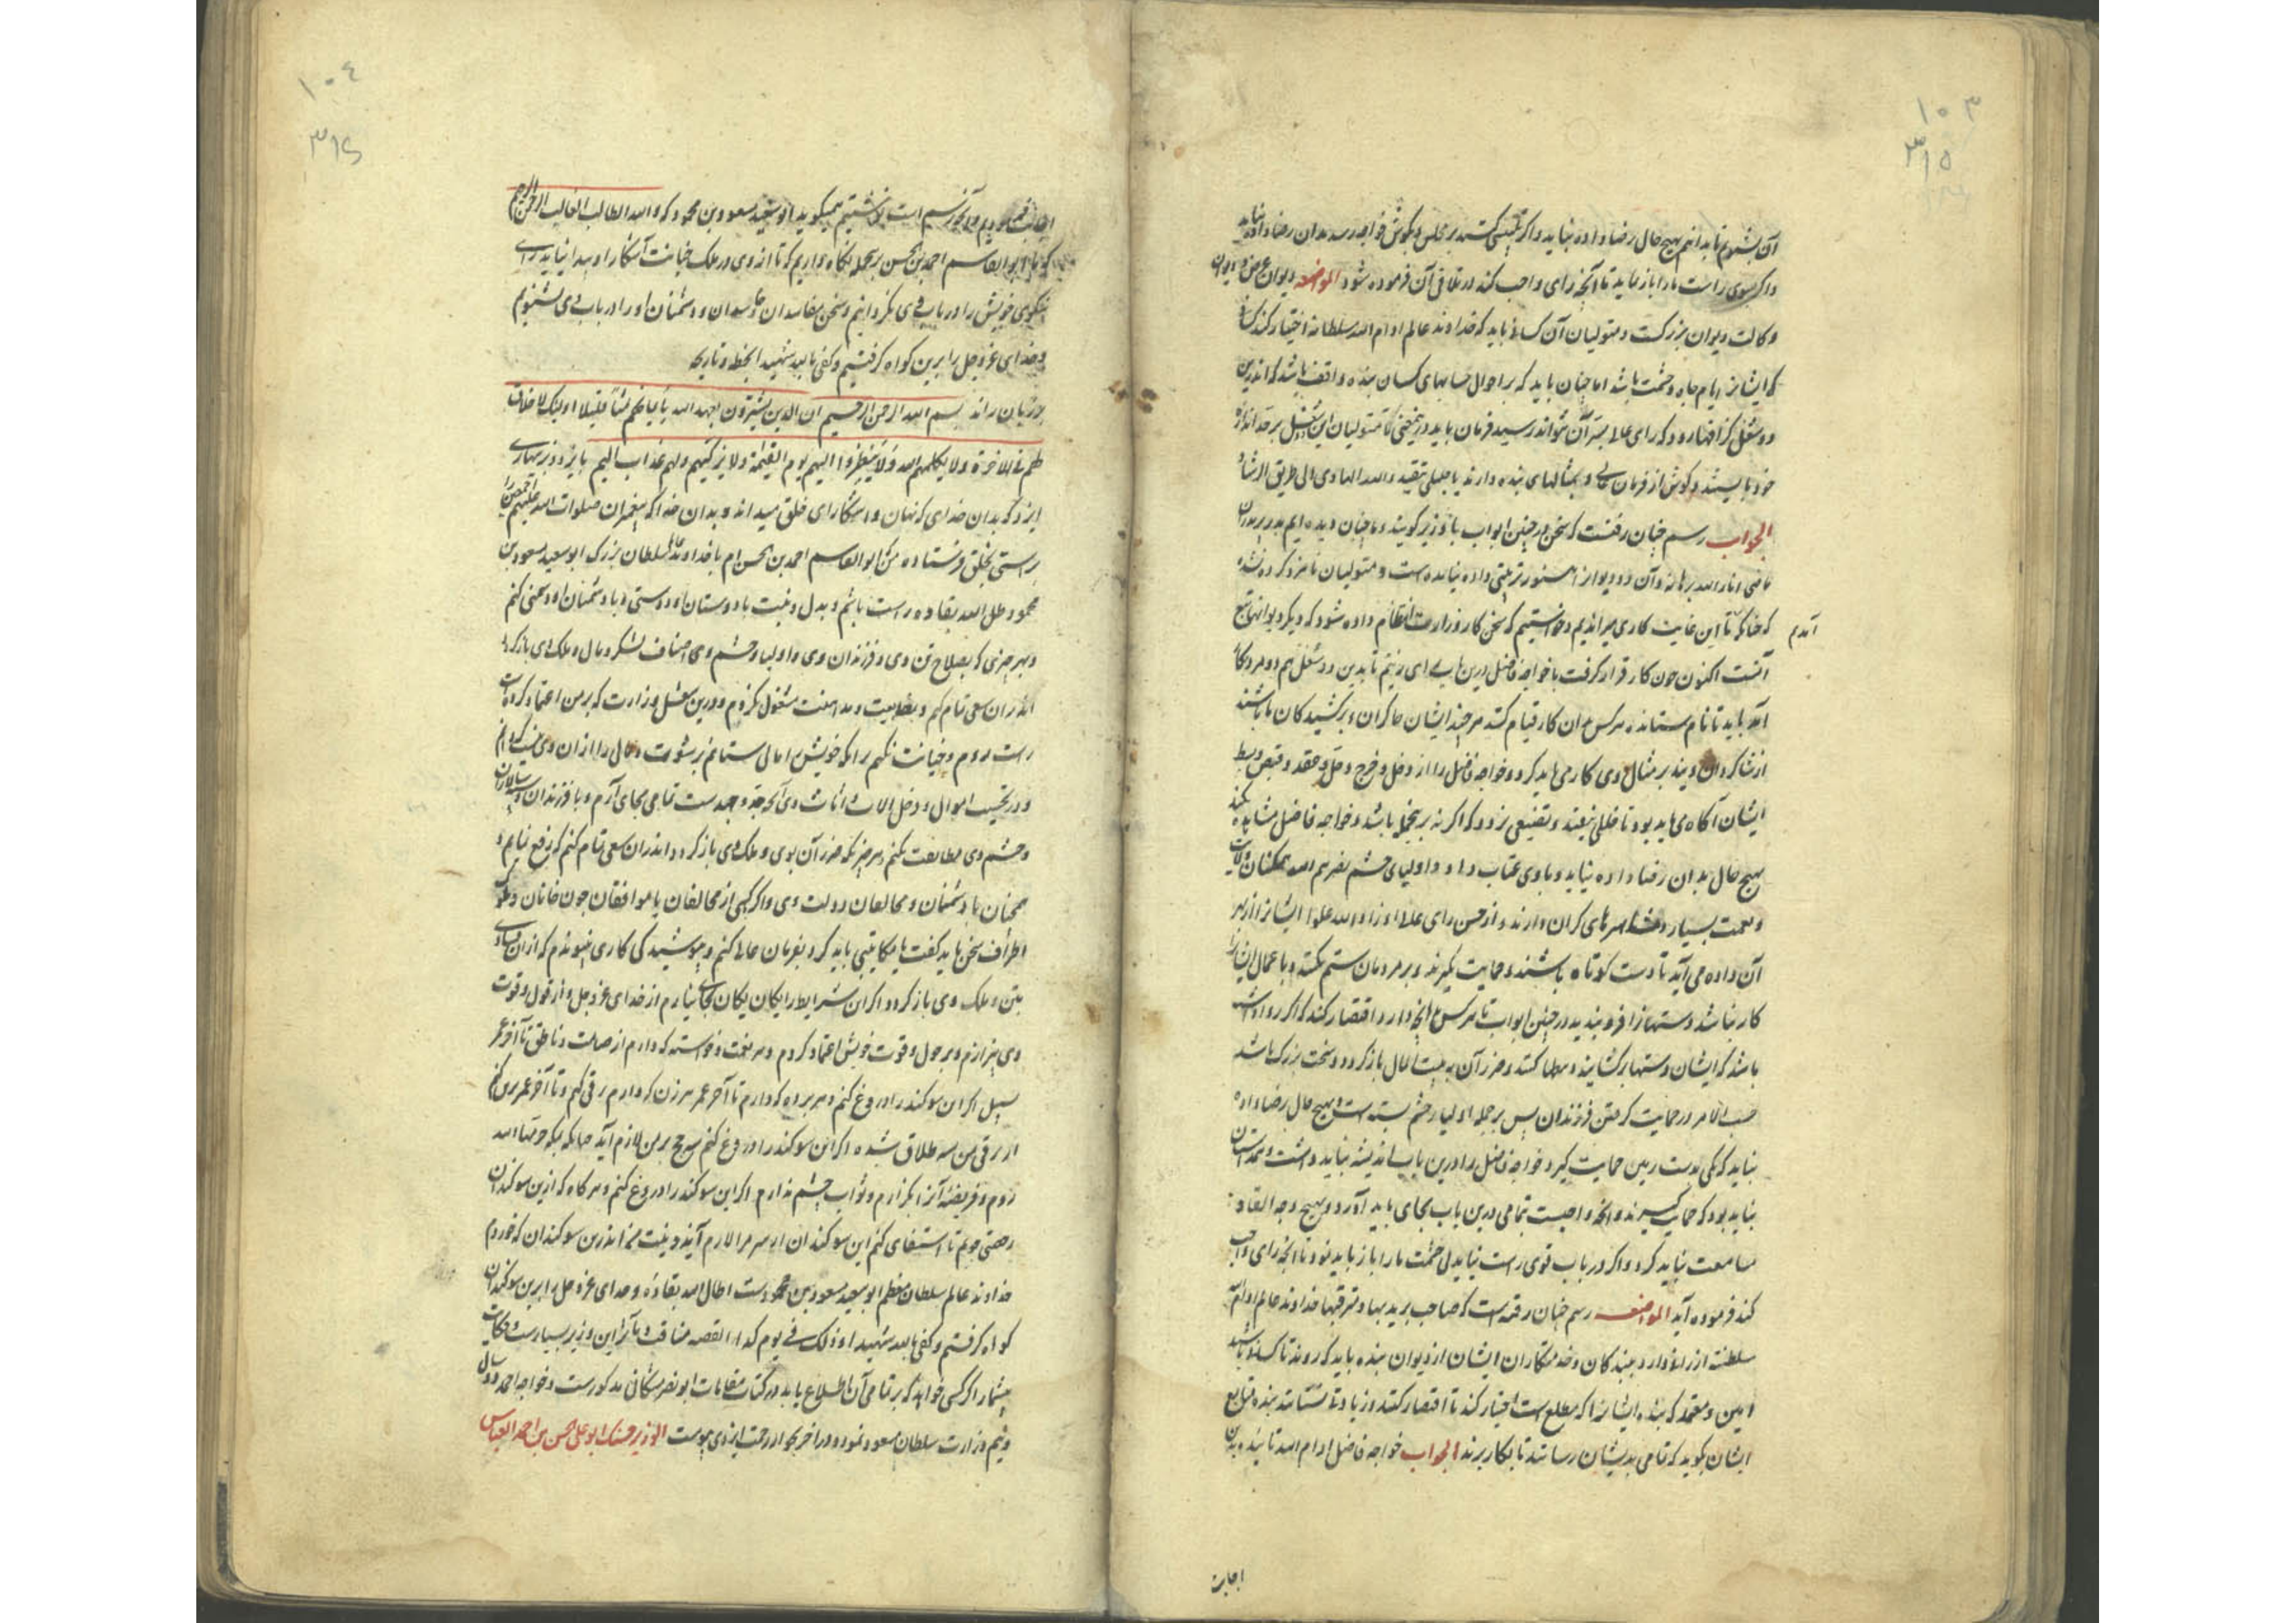 ۱۰۳
۳۱۵
آن بشنویم تا بدانیم بهیچ حال رضا داده نیاید و اگر تلبیسی کنند بر مجلس و بگوش خواجه رسد بدان رضا دادن نباید
و اگر بسوی راست ما را باز نماید تا آنچه رای واجب کند در تلافی آن فرموده شود المواضعه دیوان عرض و دیوان
وکالت دیوان بزرگست و متولیان آن کسانی باید که خداوند عالم ادام الله سلطانه اختیار کند کسانی
که ایشانرا نام جاه و حشمت باشد اما چنان باید که بر احوال حسابهای کسان بنده واقف باشد که اندرین
دو شغل گر افتد رود که رای عالی بسر آن نتواند رسید فرمان باید درین معنی تا متولیان این شغل بر حد اندازه
خود بایستند و گوش از فرمان عالی و بمثالهای بنده دارند یا جلیلی تنقید والله الهادی الی طریق الرشاد
الجواب رسم چنان رفتست که سخن در چنین ابواب با وزیر گویند و ما چنان دیده‌ایم بدر پدران
ماضی انار الله برهانه و آن دو دیوانرا هنوز ترتیبی داده نیامده است و متولیان نامزد کرده نشده
که چنانکه تا این غایت کاری میراندیم و خواستیم که سخن کار وزارت انتظام داده شود که دیگر دیوانها تبع
آنست اکنون چون کار قرار گرفت با خواجه فاضل درین بابی رای زنیم تا بدین دو شغل هم دو مرد کار
آمدم
آمد باید تا نام ستانده هر کس آن کار قیام کند هر چند ایشان چاکران و برکشیدگان ما باشند
از شاگردان ویند بر مثال وی کار می باید کرد و خواجه فاضل را از دخل و خرج و حل و عقد و قبض و بسط
ایشان آگاه می باید بود تا خللی نیفتد و تضییعی نرود که اگر نه بر نجمله باشد و خواجه فاضل مشاهده کند
بهیچ حال بدان رضا داده نیاید و با وی عتاب رود و اولیای حشم نصرهم الله همگنان ولایت
و نعمت بسیار و مشاهرهای گران دارند و از حسن رای علاء زاد الله علوا ایشانرا از بهر
آن داده می آید تا دست کوتاه باشند و حمایت نگیرند و بر مردمان ستم نکنند و با عمال ایشانرا
کار نباشد دستها را فرو بندید در چنین ابواب تا هر کس بر آنچه دارد اقتصار کند که اگر روا داشته
باشد که ایشان دستها برگشایند و مطالبت کنند و ضرر آن به بیت المال بازگردد و سخت بزرگ باشد
حسب الامر در حمایت گرفتن فرزندان پس بر جمله اولیا و حشم بسته است و بهیچ حال رضا داده
نیاید که یکی بدست زمین حمایت گیرد و خواجه فاضل را درین باب اندیشه نباید داشت و همداستان
نباید بود که حمایت گیرند و آنچه واجبست بتمامی درین باب بجای باید آورد و بهیچ وجه القا و
مسامحت نباید کرد و اگر در باب قومی راست نیاید بی حشمت ما را باز باید نمود تا آنچه رای واجب
کند فرموده آید المواضعه رسم چنان رفته‌ست که صاحب بریدیها و مشرفیها خداوند عالم ادام الله
سلطنته ارزانی دارد و بندگان و خدمتکاران ایشان از دیوان بنده باید که روند تا کسانی باشند
امین و معتمد که بنده ایشانرا که مطلع است اختیار کند تا اقتصار کنند و زیادتی نستانند بنده تتابع
ایشان بگوید که تمامی بدیشان رسانند تا بکار برند الجواب خواجه فاضل ادام الله تأییده بدین
اجابت
۱۰۴
۳۱۶
اجابت فرمودیم و آنچه رسم است نوشتیم همیگوید ابو سعید مسعود بن محمود که والله الطالب الغالب الرحمن الرحیم
که با ابو القاسم احمد بن الحسن بر جمله نگاه داریم که تا از وی در ملک خیانت آشکارا و پیدا نیاید رای
نیکوی خویش را در باب وی نگردانیم و سخن مفاسدان و حاسدان و دشمنان او را در باب وی نشنویم
و خدای عز و جل را برین گواه گرفتیم و کفی بالله شهیدا بخطه و تاریخه
بر زبان راند بسم الله الرحمن الرحیم ان الذین یشترون بعهد الله و ایمانهم ثمنا قلیلا اولئک لا خلاق
لهم فی الاخرة ولا یکلمهم الله ولا ینظر الیهم یوم القیمة ولا یزکیهم ولهم عذاب الیم بایزد و بزنهاری
ایزد که بدان خدای که نهان و اشکارای خلق میداند و بدان خدا که پیغمبران صلوات الله علیهم اجمعین را
براستی بخلق فرستاده من که ابو القاسم احمد بن الحسن ام با خداوند عالم سلطان بزرگ ابو سعید مسعود بن
محمود اطال الله بقاه راست باشم و بدل و نیت با دوستان او دوستی و با دشمنان او دشمنی کنم
و بهر چیزی که بصلاح تن وی و فرزندان وی و اولیا و حشم وی و اصناف لشکر و مال و ملک وی بازگردد
اندران سعی تمام کنم و بطبیعت و مداهنت مشغول نگردم و درین شغل وزارت که بر من اعتماد کرده است
راست روم و خیانت نکنم بر آنکه خویش را مالی ستانم برشوت و مالی را از آن وی نصیب گردانم
و در تحسیب اموال و دخل و آلات و اثاث وی آنچه جد و جهدست تمامی بجای آرم و با فرزندان و سپاه سالاران
و حشم وی مطابقت نکنم در هر چیز که ضرر آن بوی و ملک وی بازگردد و اندران سعی تمام کنم که رفع نمایم و
همچنان با دشمنان و مخالفان دولت وی و اگر کسی از مخالفان یا موافقان چون خانان و ملوک
اطراف سخن باید گفت یا مکاتبتی باید کرد بفرمان عالی کنم و پوشیدگی کاری نپیوندم که از آن فسادی
بتن و ملک وی بازگردد اگر این شرایط را یگان یگان بجای نیارم از خدای عز و جل و از قول و قوت
وی بیزارم و بر حول و قوت خویش اعتماد کردم و هر نعمت و خواسته که دارم از صامت و ناطق تا آخر عمر
سبیل اگر این سوگند را دروغ کنم و هر برده که دارم تا آخر عمر هر زن که دارم بزنی کنم و تا آخر عمر بزنی کنم
از برقی من سه طلاق شده اگر این سوگند را دروغ کنم سی حج بر من لازم آید چنانکه بمکه حرسها الله
روم و فریضه آنرا بگزارم و ثواب چشم ندارم اگر این سوگند را دروغ کنم و هر گاه که ازین سوگندان
رخصتی جویم تا استثنای کنم این سوگندان از سر مرا لازم آیند و نیت من اندرین سوگندان که خوردم
خداوند عالم سلطان معظم ابو سعید مسعود بن محمودست اطال الله بقاءه و خدای عز و جل را برین سوگندان
گواه گرفتم و کفی بالله شهیدا و ذلک فی یوم کذا القصه مناقب و مآثر این وزیر بسیارست و حکایات
بیشمار اگر کسی خواهد که بر تمامی آن اطلاع یابد در کتاب مقامات ابو نصر مشکانی مذکورست و خواجه احمد دو سال
و نیم وزارت سلطان مسعود نمود و در آخر بجوار رحمت ایزدی پیوست الوزیر حسنک ابو علی حسن بن احمد العباس